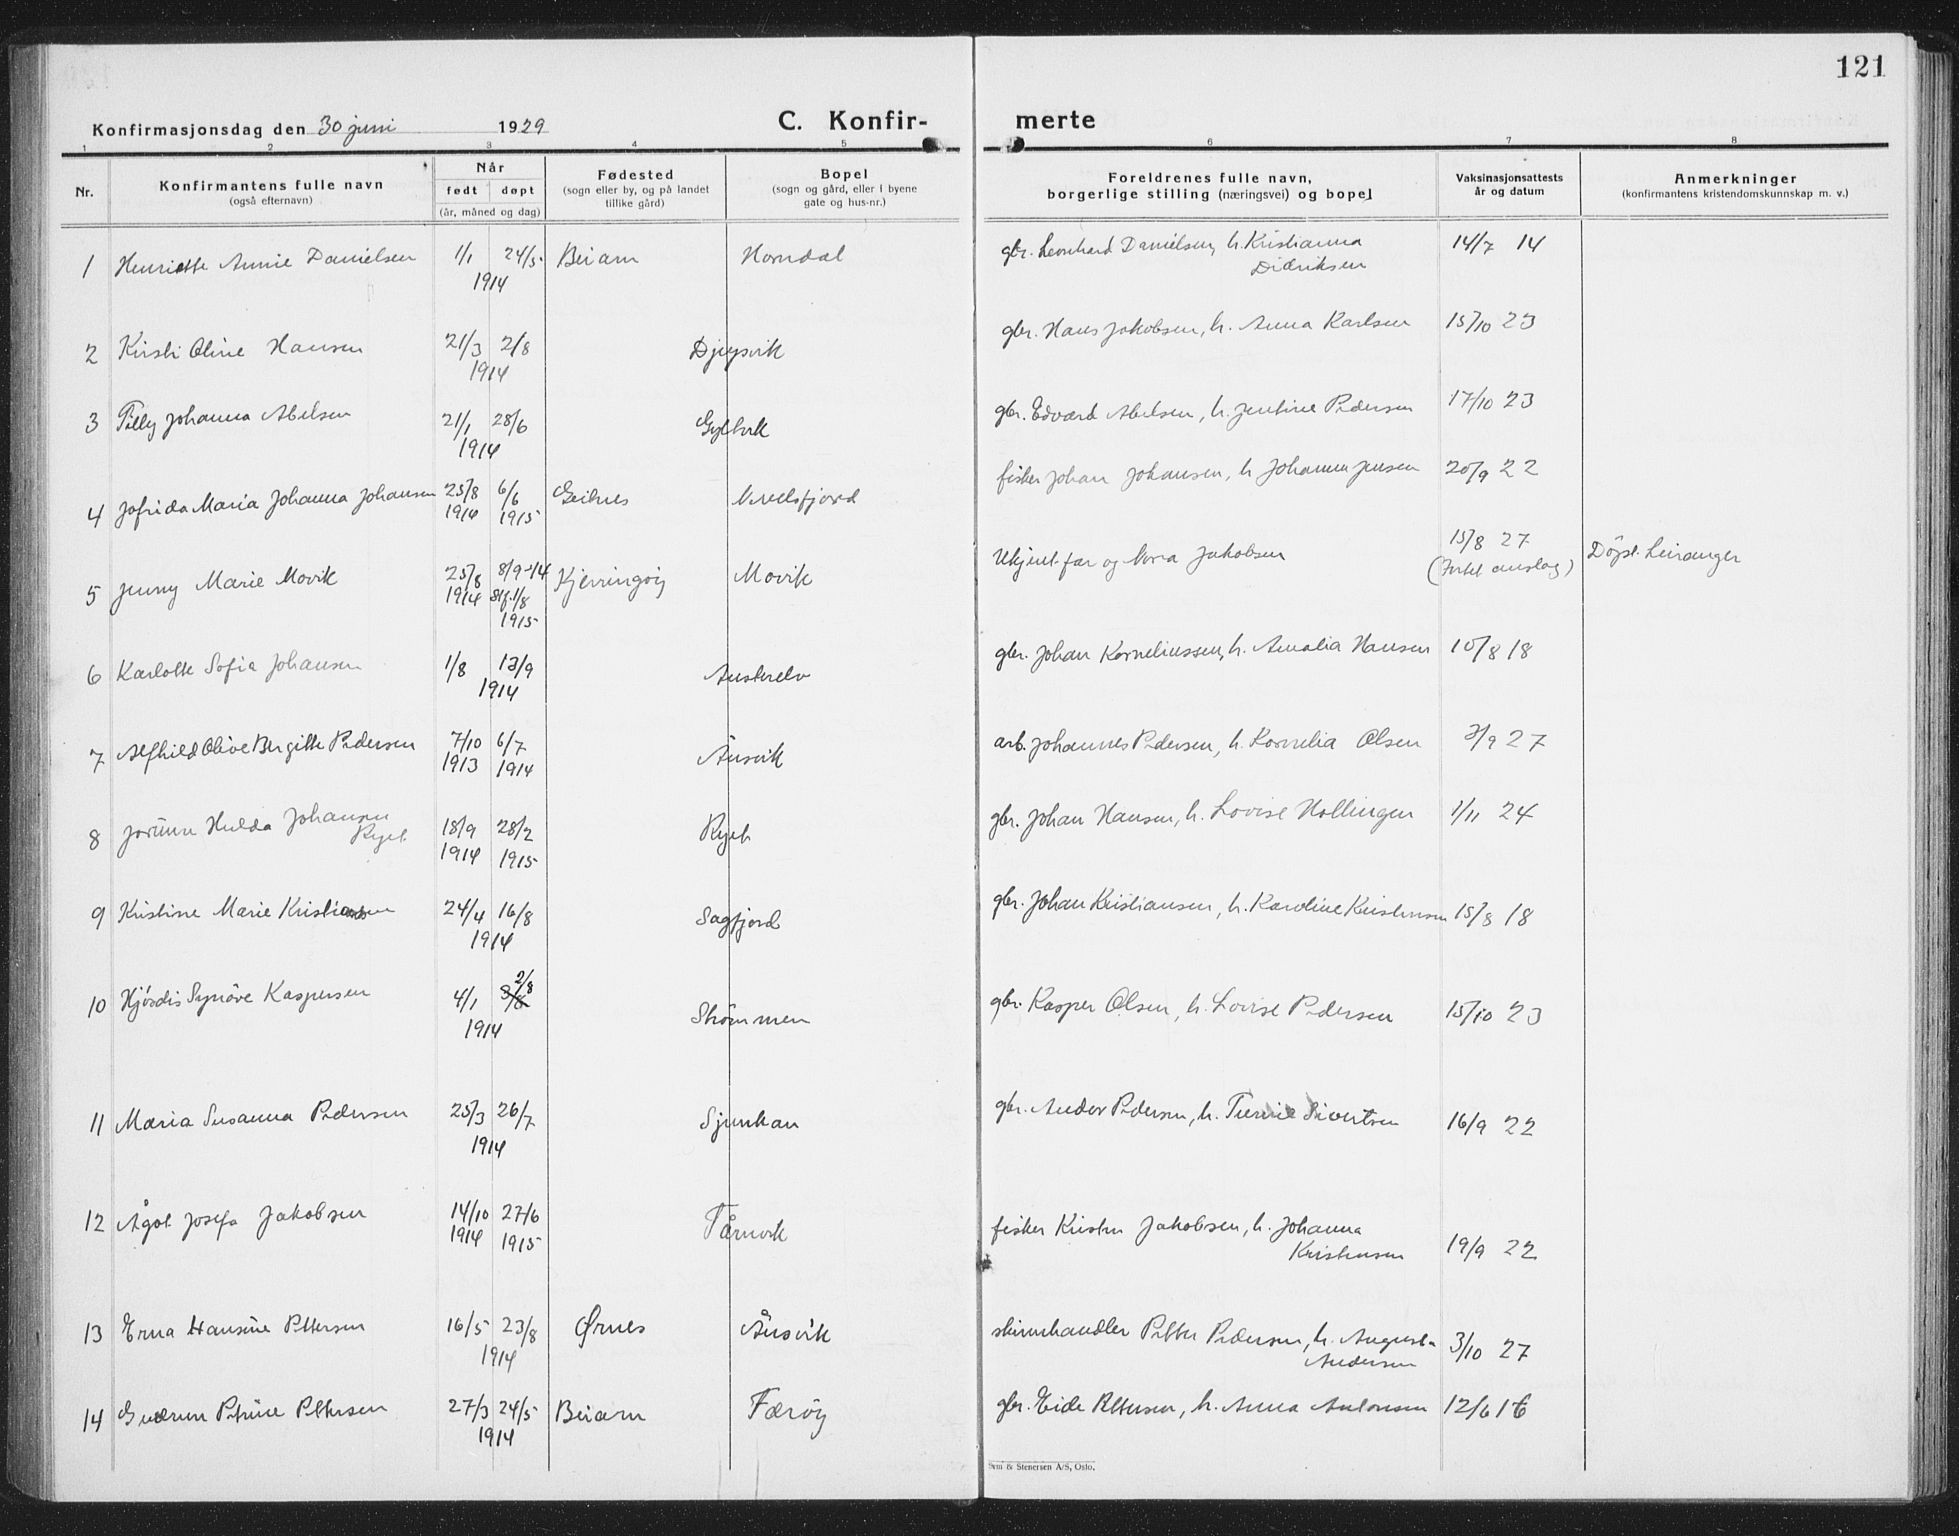 121
Konfirmasjonsdag den 30 juni 1929
C. Konfir-
merte
1 2 3 4 5 6 7 8
Nr.
Konfirmantens fulle navn
(også efternavn)
Når
født døpt
(år, måned og dag)
Fødested
(sogn eller by, og på landet
tillike gård)
Bopel
(sogn og gård, eller i byene
gate og hus-nr.)
Foreldrenes fulle navn,
borgerlige stilling (næringsvei) og bopel
Vaksinasjonsattests
år og datum
Anmerkninger
(konfirmantens kristendomskunnskap m. v.)
1 Henriette Annie Danielsen 1/1 24/5 Beiarn Horndal gbr. Leonhard Danielsen, h. Kristianna 14/7 14
1914 Didriksen
2 Kirsti Oline Hansen 21/3 2/8 Djupvik gbr. Hans Jakobsen, h. Anna Karlsen 15/10 23
1914
3 Tilly Johanna Abelsen 21/1 28/6 Gyltvik gbr. Edvard Abelsen, h. Jentine Pedersen 17/10 23
1914
4 Jofrida Maria Johanna Johansen 25/8 6/6 Geitnes fisker Johan Johansen, h. Johanna Jensen 20/9 22
1914 1915
5 Jenny Marie Movik 25/8 8/9-14 Kjerringøy Movik Ukjent far og Nora Jakobsen 15/8 27 Døpt Leiranger
1914 Stf. 1/8
1915
6 Karlotte Sofia Johansen 1/8 13/9 Austerelv gbr. Johan Korneliussen, h. Amalia Hansen 10/8 18
1914
7 Alfhild Olive Bergitte Pedersen 7/10 6/7 Ånsvik arb. Johannes Pedersen, h. Kornelia Olsen 3/9 27
1913 1914
8 Jorunn Hulda Johansen 18/9 28/2 Ryet gbr. Johan Hansen, h. Lovise Hollingen 1/11 24
Ryet
1914 1915
9 Kristine Marie Kristiansen 24/4 16/8 Sagfjord gbr. Johan Kristiansen, h. Karoline Kristensen 15/8 18
1914
10 Hjørdis Synøve Kaspersen 4/1 3/8 2/8 Strømmen gbr. Kasper Olsen, h. Lovise Pedersen 15/10 23
1914
11 Maria Susanna Pedersen 25/3 26/7 Sjunkan gbr. Andor Pedersen, h. Sivertsen 16/9 22
1914
12 Ågot Josefa Jakobsen 14/10 27/6 Tårnvik fisker Kristen Jakobsen, h. Johanna
1914 1915 Kristensen 19/9 22
13 Erna Hansine Pettersen 16/5 23/8 Ørnes Ånsvik skinnhandler Petter Pedersen, h. Augusta 3/10 27
1914 Andersen
14 Gudrun Petrine Pettersen 27/3 24/5 Beiarn Færøy gbr. Eide Pettersen, h. Anna Antonsen 12/6 16
1914
Sem & Stenersen A/S, Oslo.